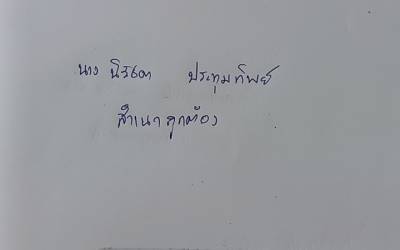 นาง นิรเดา ประทุมทิพย์
สำเนาถูกต้อง